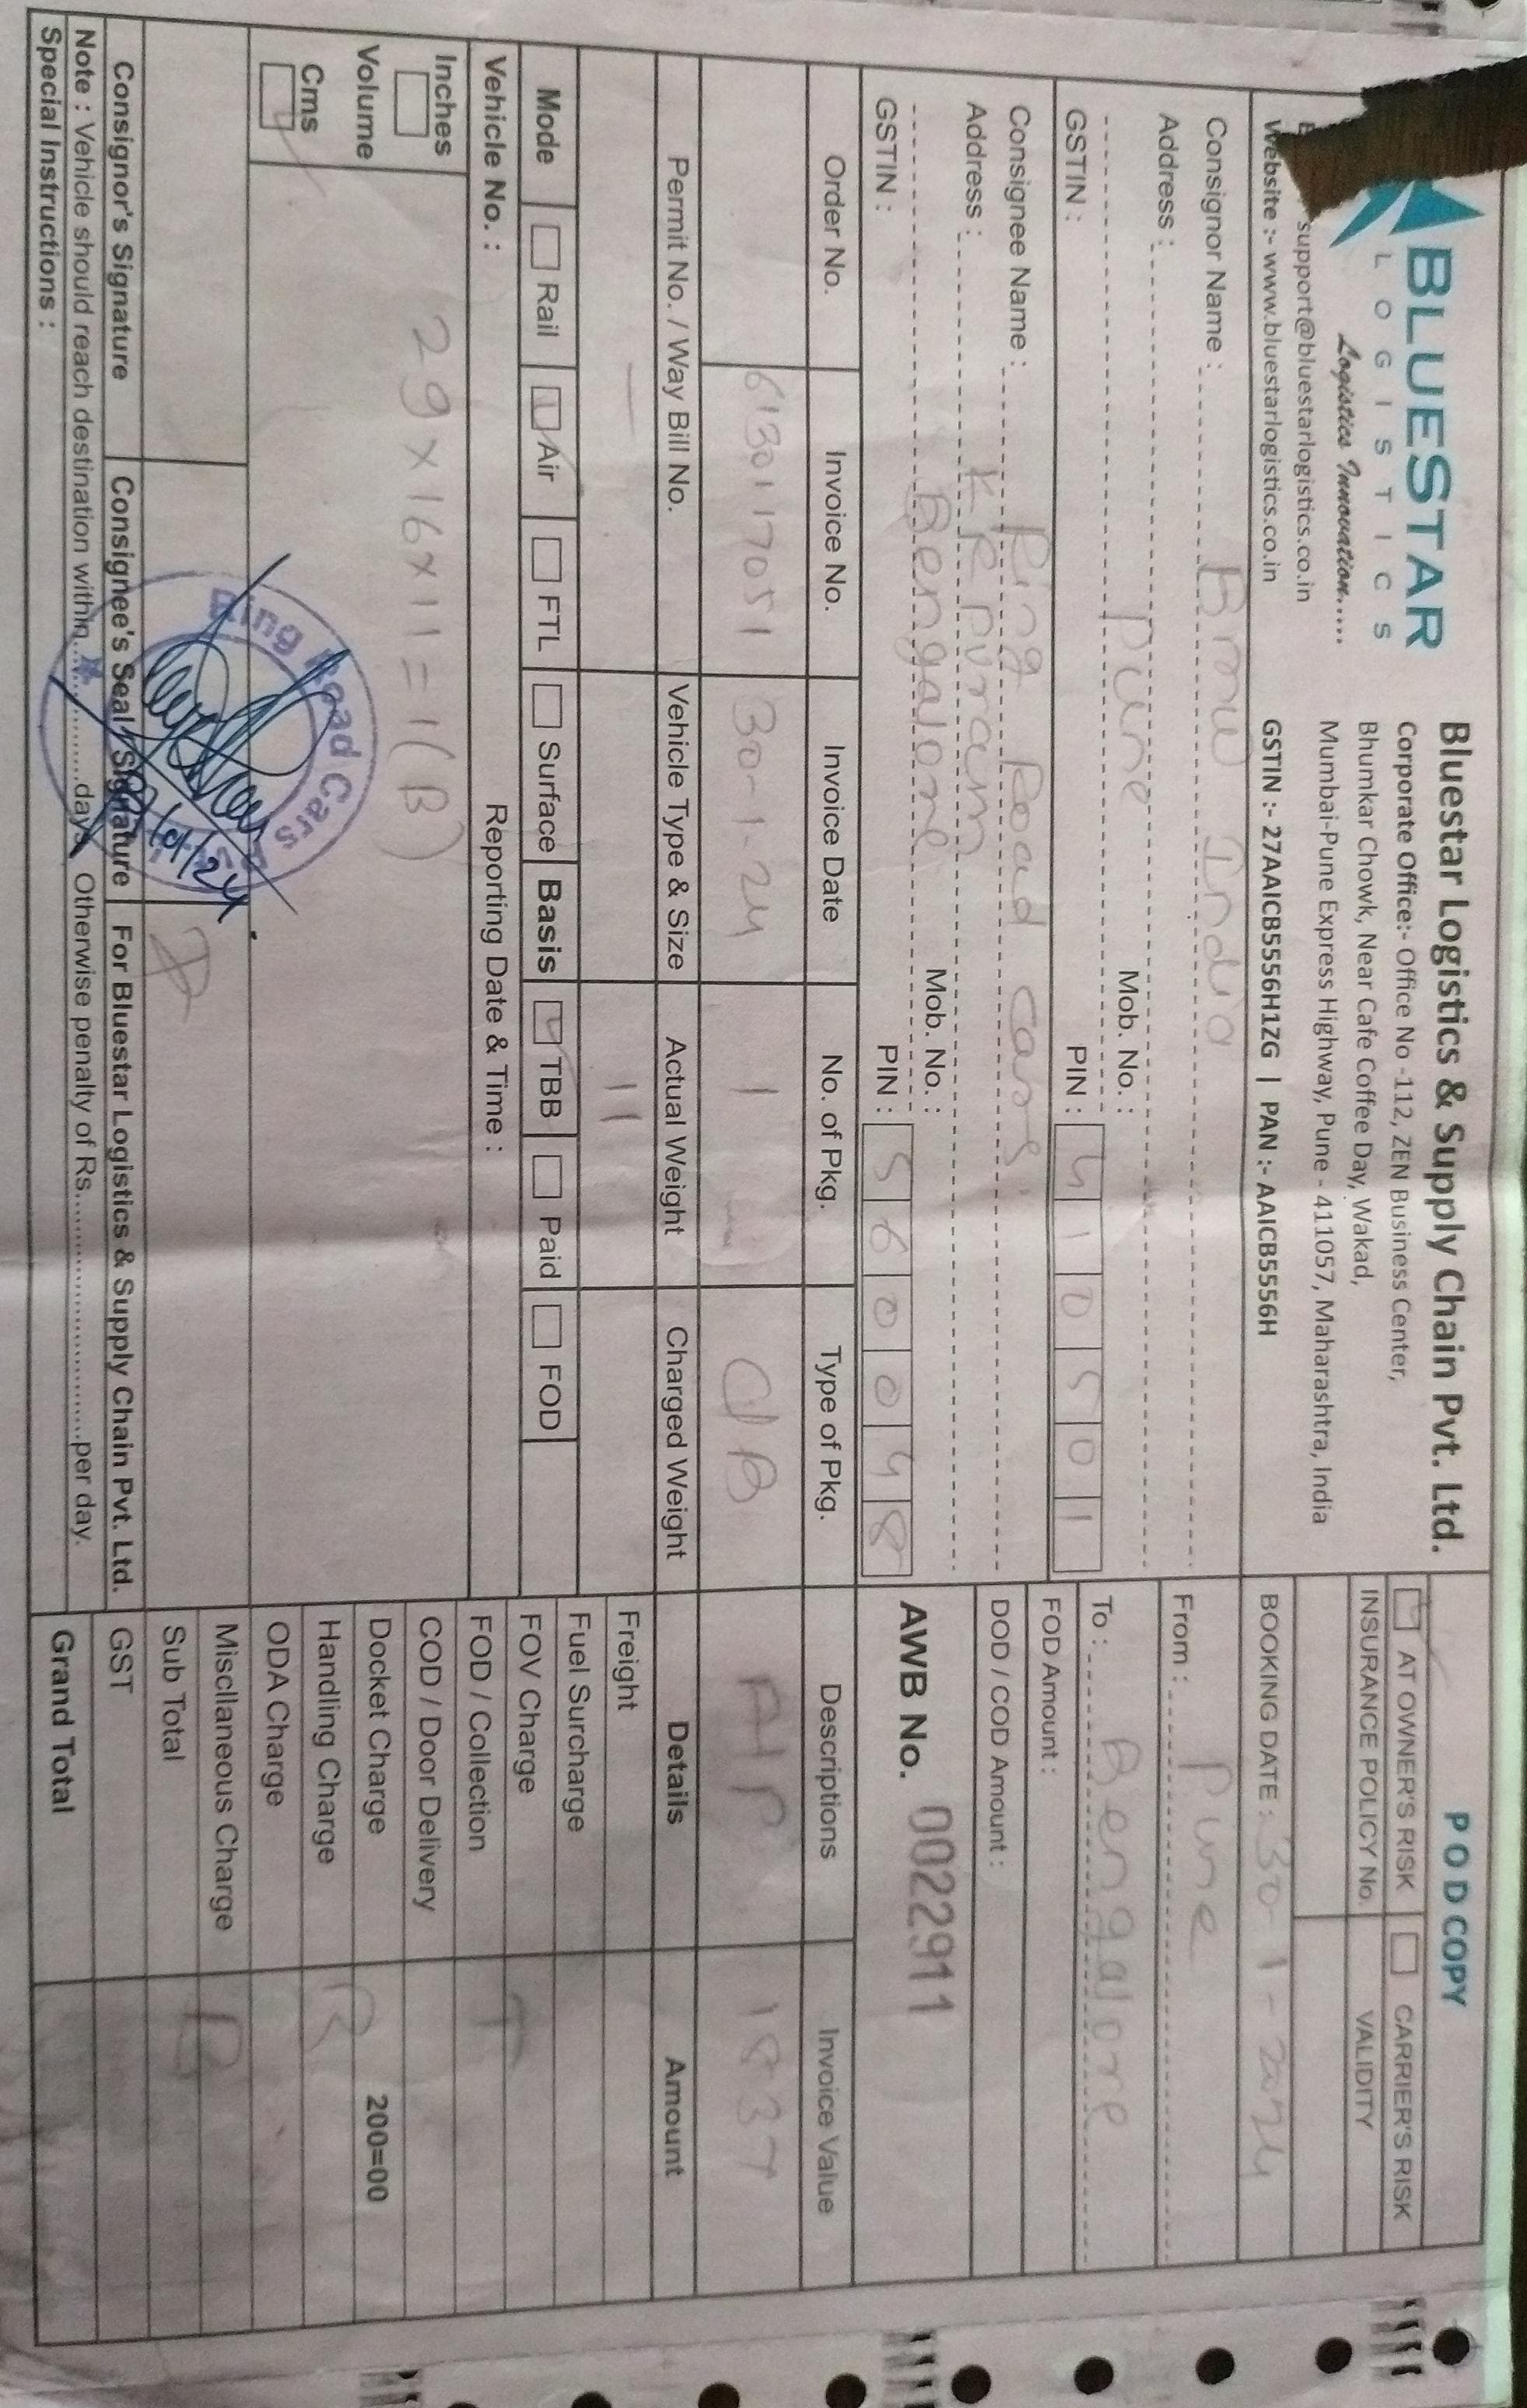 BLUESTAR
LOGISTICS
Logistics Innovation.....
support@bluestarlogistics.co.in
Website :- www.bluestarlogistics.co.in
Bluestar Logistics & Supply Chain Pvt. Ltd.
Corporate Office:- Office No -112, ZEN Business Center,
Bhumkar Chowk, Near Cafe Coffee Day, Wakad,
Mumbai-Pune Express Highway, Pune - 411057, Maharashtra, India
GSTIN :- 27AAICB5556H1ZG | PAN :- AAICB5556H
POD COPY
AT OWNER'S RISK CARRIER'S RISK
INSURANCE POLICY No. VALIDITY
BOOKING DATE : 30-1-2024
Consignor Name : BMW India
Address :
Pune Mob. No. :
GSTIN : PIN : 410501
From : Pune
To : Bengalore
FOD Amount :
DOD / COD Amount :
Consignee Name : Ring Road cars.
Address : KR Puram
Bengalore Mob. No. :
GSTIN : PIN : 560048
AWB No. 0022911
Order No. Invoice No. Invoice Date No. of Pkg. Type of Pkg. Descriptions Invoice Value
6130117051 30-1-24 1 C/B A/P 1837
Permit No. / Way Bill No. Vehicle Type & Size Actual Weight Charged Weight Details Amount
— 11
Freight
Fuel Surcharge
Mode Rail Air FTL Surface Basis TBB Paid FOD
FOV Charge
T
Vehicle No. : Reporting Date & Time :
FOD / Collection
COD / Door Delivery
Docket Charge 200=00
Handling Charge
B
ODA Charge
Miscllaneous Charge
B
Sub Total
GST
Grand Total
Inches
Volume
Cms
29x16x11=1(B)
Ring Road Cars
Consignor's Signature Consignee's Seal / Signature For Bluestar Logistics & Supply Chain Pvt. Ltd.
Note : Vehicle should reach destination within..............days, Otherwise penalty of Rs............................per day.
Special Instructions :